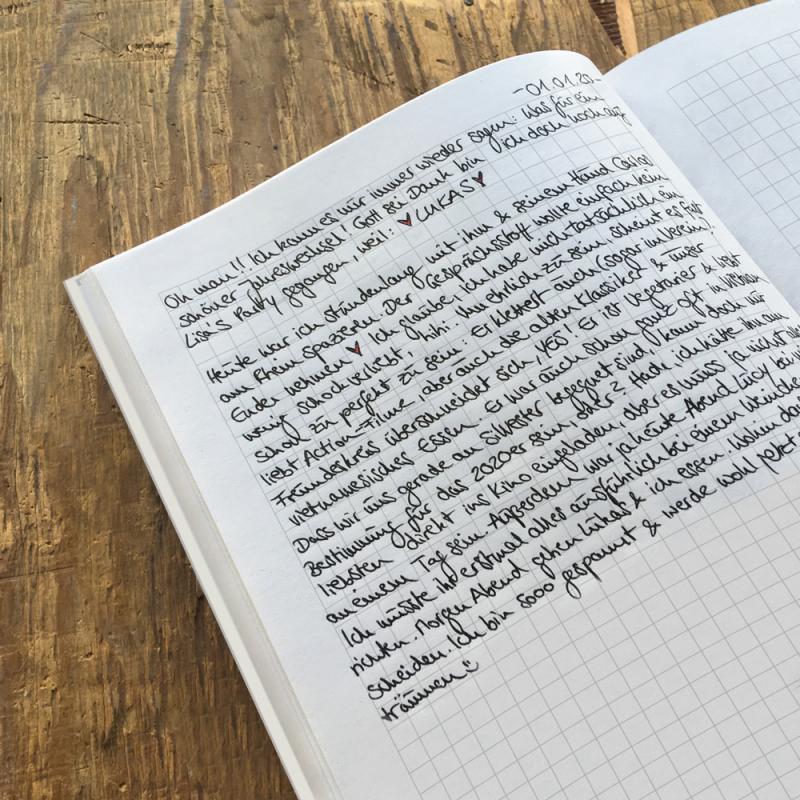 -01.01.20-
Oh man!! Ich kann es mir immer wieder sagen: Was für ein
schöner Jahreswechsel! Gott sei Dank bin ich doch noch auf
Lisa's Party gegangen, weil: ♥LUKAS♥
Heute war ich stundenlang mit ihm & seinem Hund
am Rhein spazieren. Der Gesprächsstoff wollte einfach kein
Ende nehmen ♥ Ich glaube, ich habe mich tatsächlich ein
wenig schockverliebt, hihi. Um ehrlich zu sein, scheint es fast
schon zu perfekt zu sein: Er klettert auch (sogar im Verein),
liebt Action-Filme, aber auch die alten Klassiker & unser
Freundeskreis überschneidet sich, YES! Er ist Vegetarier & liebt
vietnamesisches Essen. Er war auch schon ganz oft in
Dass wir uns gerade an Silvester begegnet sind, kann doch nur
Bestimmung für das 2020er sein, oder? Hach, ich hätte ihn am
liebsten direkt ins Kino eingeladen, aber es muss ja nicht alles
an einem Tag sein. Außerdem war ja heute Abend Lucy bei
Ich musste ihr erstmal alles ausführlich bei einem
richten. Morgen Abend gehen Lukas & ich essen. Wohin
scheiden. Ich bin sooo gespannt & werde wohl
träumen